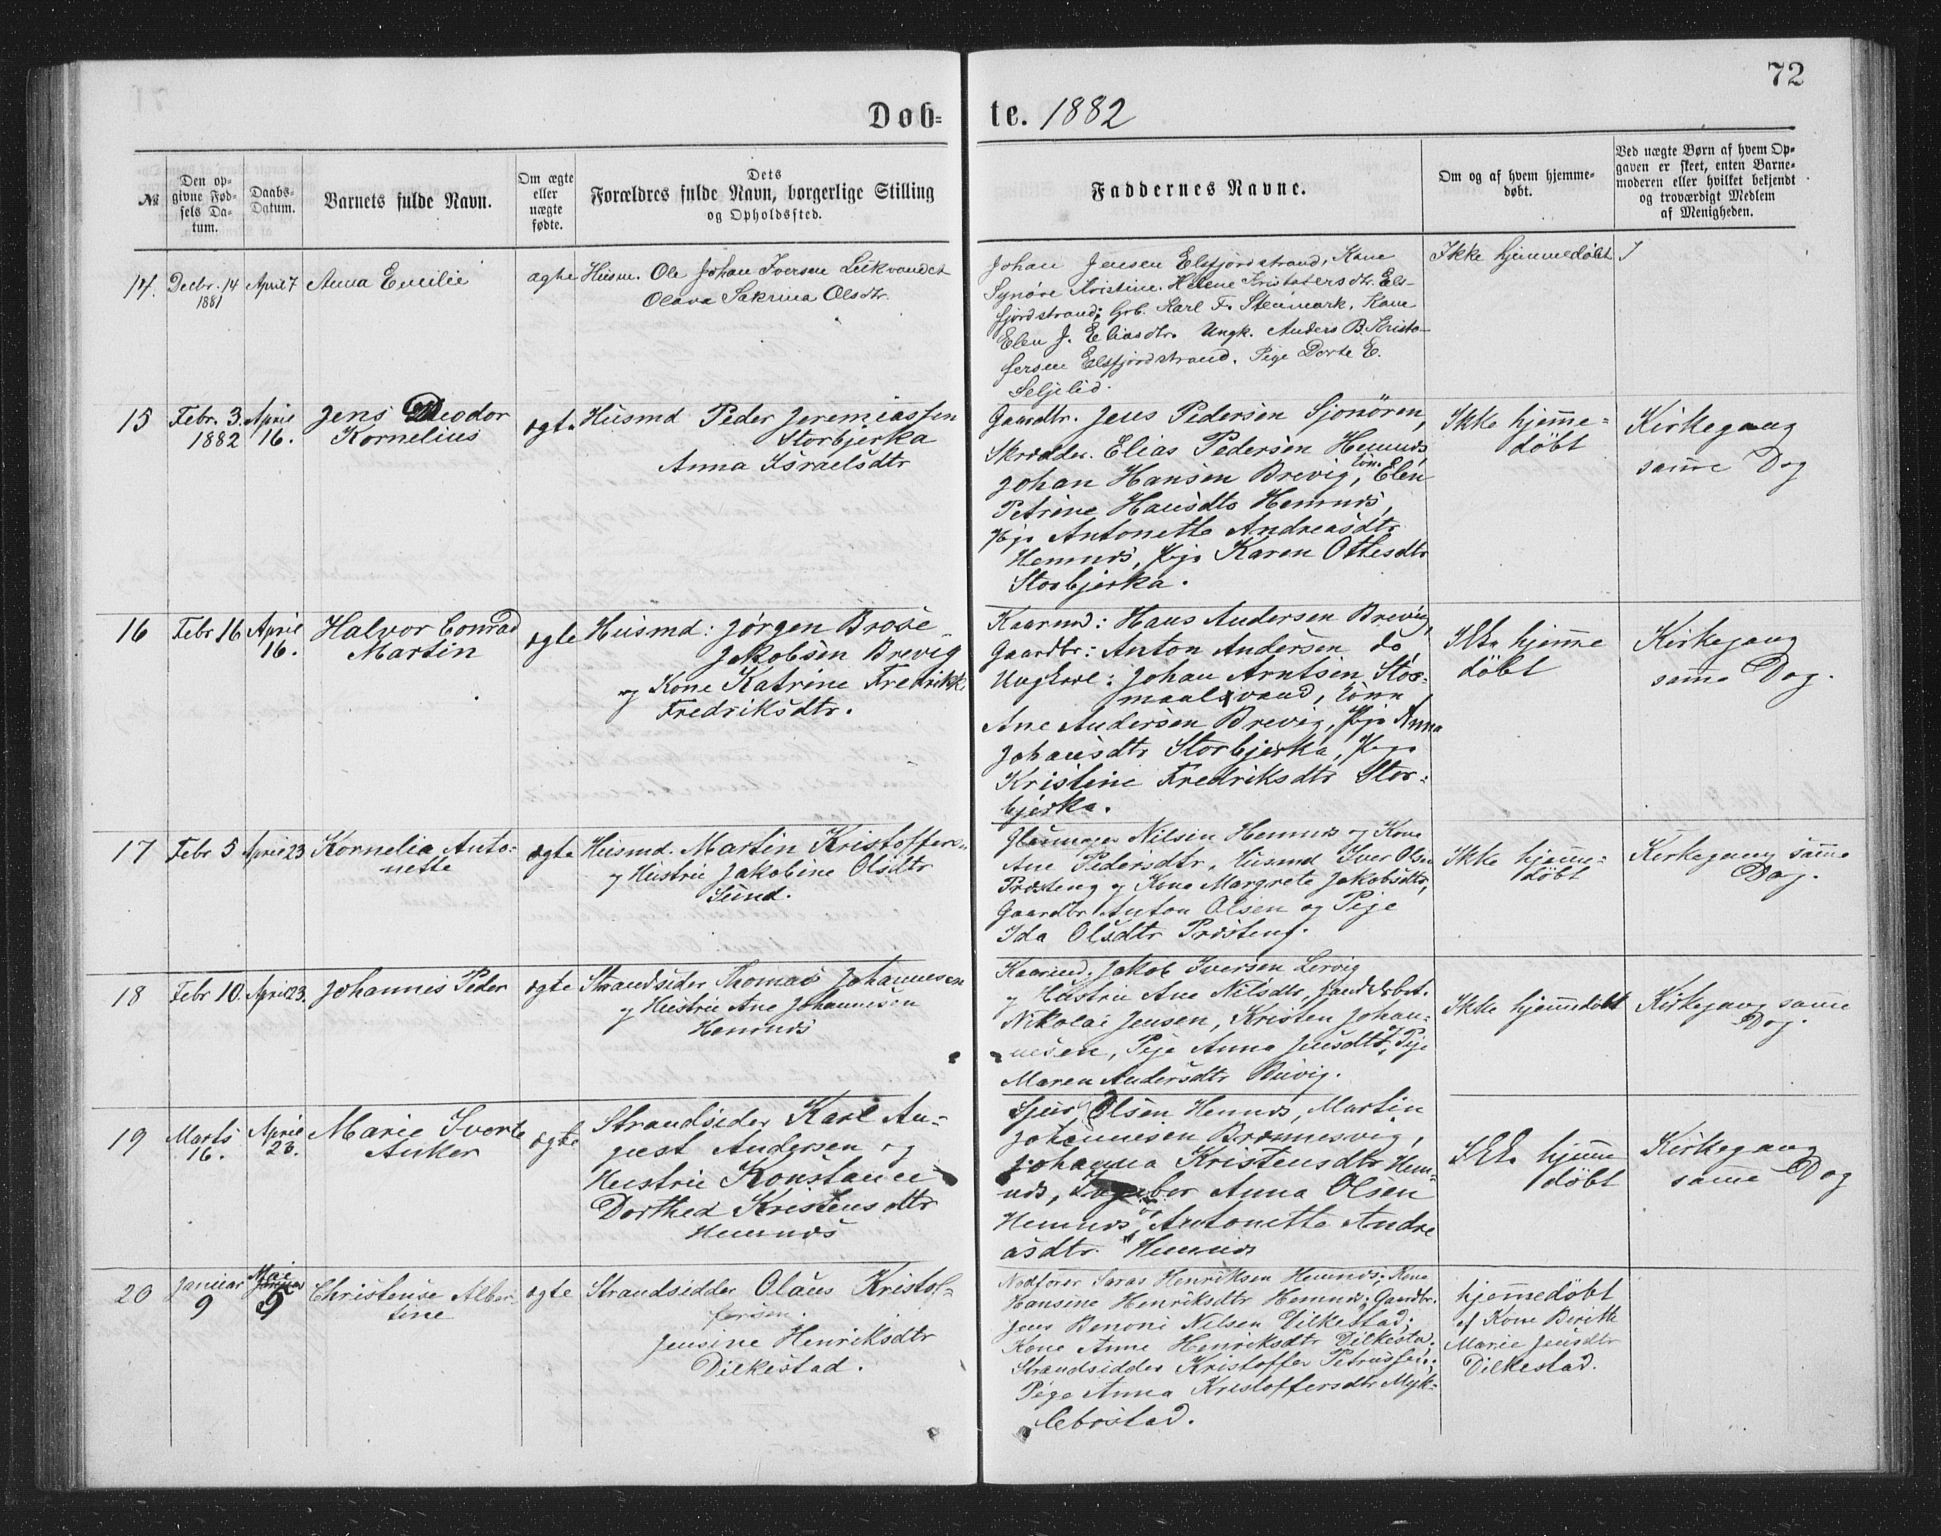 72
Døb-te. 1882
№
Den opgivne Fødsels Datum.
Daabs-Datum.
Barnets fulde Navn.
Om ægte eller nægte fødte.
Dets Forældres fulde Navn, borgerlige Stilling og Opholdssted.
Faddernes Navne.
Om og af hvem hjemmedøbt.
Ved nægte Børn af hvem Opgaven er skeet, enten Barnemoderen eller hvilket bekjendt og troværdigt Medlem af Menigheden.
14. Decbr. 14 1881 April 7 Anna Emilie ægte
Husm. Ole Johan Iversen Lekvandet
Olava Sakrina Olsdtr.
Johan Jensen Elsfjordstrand, Kone
Synøve Kristine. Helene Kristofersdtr. Els-
fjordstrand; Grb. Karl F. Stenmark. Kone
Elen J. Eliasdtr. Ungk. Anders B. Kristo-
fersen Elsfjordstrand. Pige Dorte E.
Seljelid.
Ikke hjemmedøbt
15 Febr. 3. 1882 April 16. Jens Theodor
Kornelius
ægte
Husmd Peder Jeremiassen
Storbjerka
Anna Israelsdtr
Gaardbr. Jens Pedersen Sjonøren,
Skrædder. Elias Pedersen Hemnes,
Johan Hansen Brevig, Elen
Petrine Hansdtr Hemnes,
Antonette Andreasdtr
Hemnes, Karen Ottesdtr
Storbjerka.
Ikke hjemme-
døbt
Kirkegang
samme Dag
16 Febr 16 April 16. Halvor Conrad
Martin
ægte
Husmd: Jørgen Brose
Jakobsen Brevig
og Kone Katrine Fredrikke
Fredriksdtr.
Kaarmd: Hans Andersen Brevig,
Gaardbr: Anton Andersen do,
Ungkarl: Johan Arntsen Stor-
maalsvand, Kone
Ane Andersen Brevig, Pige Anna
Johansdtr Storbjerka, Pige
Kristine Fredriksdtr Stor-
bjerka.
Ikke hjemme
døbt
Kirkegang
samme Dag.
17 Febr 5 April 23 Kornelia Anto-
nette
ægte
Husmd. Martin Kristoffersen
og Hustru Jakobine Olsdtr
Sund.
Nilsen Hemnes og Kone
Ane Pedersdtr, Husmd Iver Olsen
Præsteng og Kone Margrete Jakobsdtr,
Gaardbr Anton Olsen og Pige
Ida Olsdtr Præsteng.
Ikke hjemme-
døbt
Kirkegang samme
Dag.
18 Febr 10. April 23. Johannes Peder ægte
Strandsider Thomas Johannesen
og Hustru Ane Johannesen
Hemnes
Kaarmd. Jakob Iversen Lervig
og Hustru Ane Nilsdtr,
Nikolai Jensen, Kristen Johan-
nesen, Pige Anna Jensdtr, Pige
Maren Andersdtr Buvig.
Ikke hjemmedøbt
Kirkegang samme
Dag.
19 Marts 16. April 23. Marie Iverte
Anker
ægte
Strandsider Karl Au-
gust Andersen og
Hustru Konstance
Dorthea Kristensdtr
Hemnes
Sjur Olsen Hemnes, Martin
Johannesen Brønnesvig,
Johanna Kristensdtr Hem-
nes, Anna Olsen
Hemnes, Antonette Andre
asdtr. Hemnes
Ikke hjemme
døbt
Kirkegang
samme Dag
20 Januar 9 Mai 9 Christense Alber-
tine
ægte
Strandsidder Olaus Kristof-
fersen.
Jensine Henriksdtr
Dilkestad.
Nodfører Saras Henriksen Hemnes; Kone
Hansine Henriksdtr Hemnes; Gaardbr.
Jens Benoni Nilsen Dilkestad;
Kone Anne Henriksdtr Dilkestad;
Strandsidder Kristoffer Petrussen;
Pige Anna Kristoffersdtr Myk-
lebostad.
hjemmedøbt
af Kone Berith
Marie Jensdtr
Dilkestad.